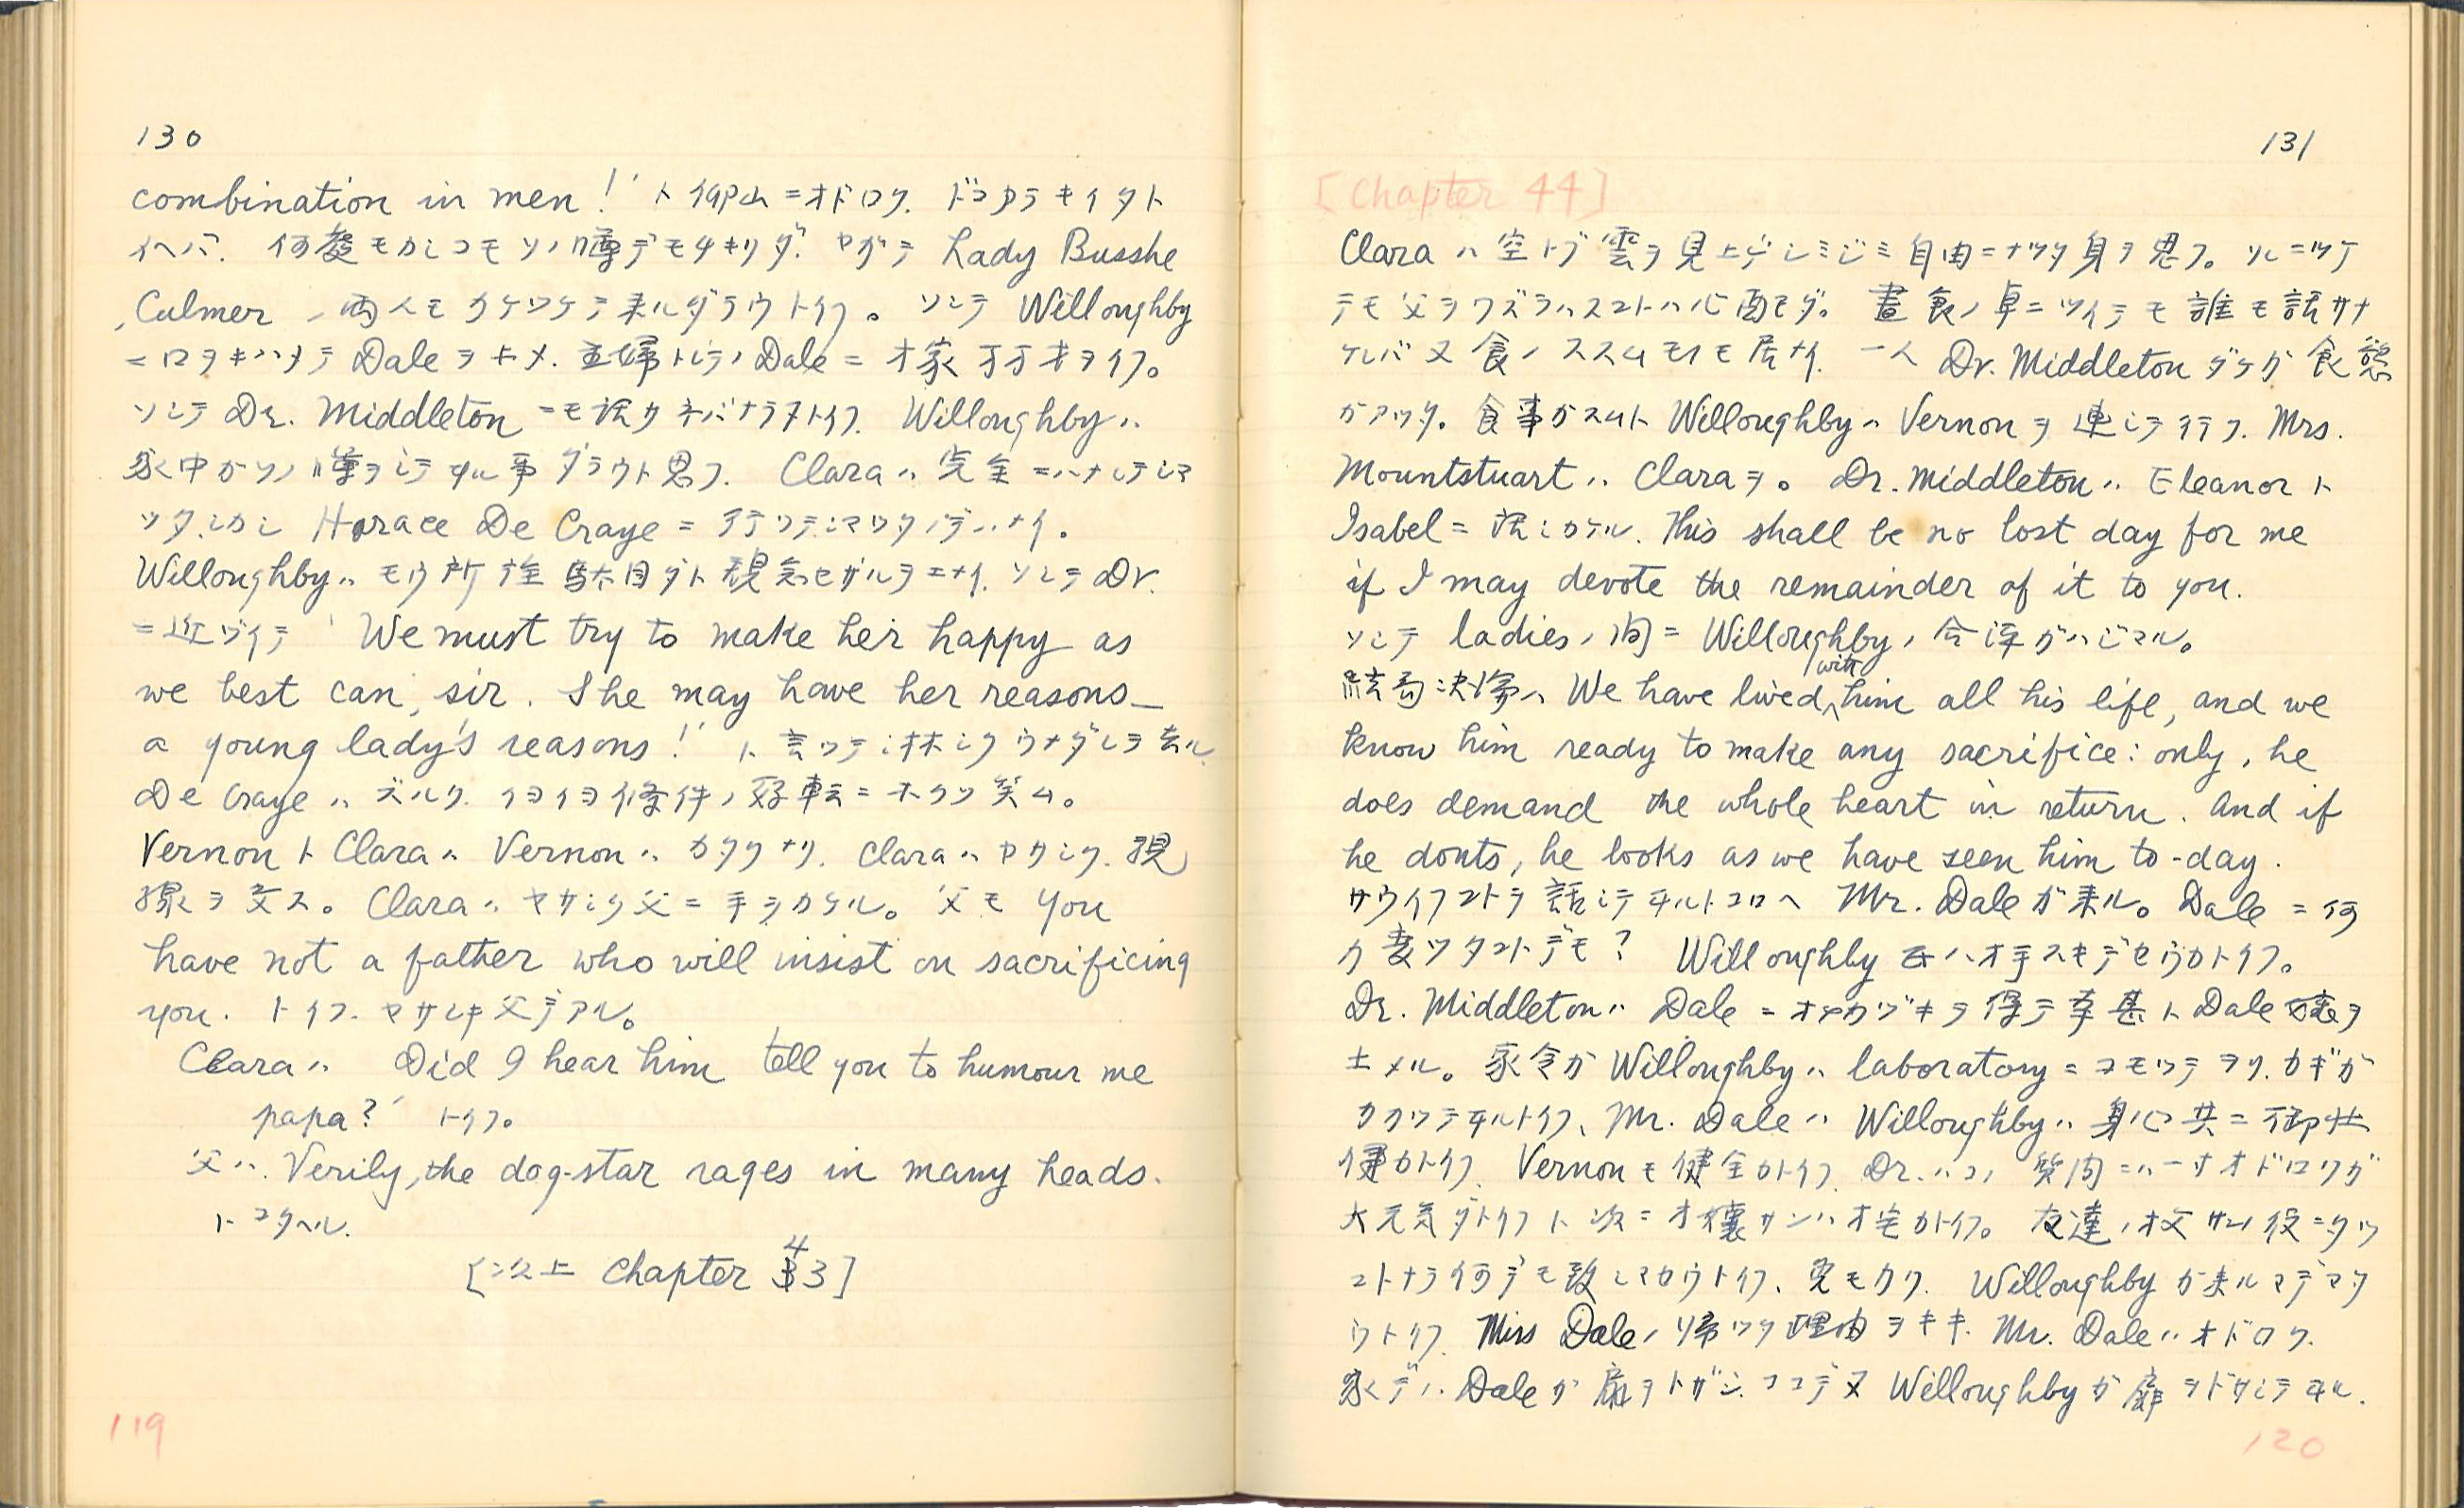 130
combination in men!' ト仰山ニオドロク. ドコカラキイタト
イヘバ. 何処モカシコモソノ噂デモチキリダ. ヤガテ Lady Busshe
, Culmer ノ両人モカケツケテ来ルダラウトイフ。 ソシテ Willoughby
ニ口ヲキハメテ Dale ヲホメ. 主婦トシテノ Dale ニオ家万才ヲイフ。
ソシテ Dr. Middleton ニモ話サネバナラヌトイフ. Willoughby ハ
家中がソノ噂ヲシテヰル事ダラウト思フ. Clara ハ完全ニハナレテシマ
ツタ.シカシ Horace De Craye ニ行ツテシマツタノデハナイ。
Willoughby ハモウ所詮駄目ダト観念セザルヲエナイ. ソシテ Dr.
ニ近ヅイテ 'We must try to make her happy as
we best can, sir. She may have her reasons—
a young lady's reasons!' ト言ツテ淋シクウナダレテ去ル
De Craye ハズルク イヨイヨ條件ノ好転ニホクソ笑ム。
Vernon ト Clara ハ Vernon ハカタクナリ. Clara ハヤサシク. 視
線ヲ交ス。 Clara ハヤサシク父ニ手ヲカケル。 父モ You
have not a father who will insist on sacrificing
you. トイフ. ヤサシキ父デアル。
Clara ハ Did I hear him tell you to humour me
papa?' トイフ。
父ハ. Verily, the dog-star rages in many heads.
トコタヘル.
[以上 Chapter 43]
119
131
[Chapter 44]
Clara ハ空トブ雲ヲ見上ゲシミジミ自由ニナツタ身ヲ思フ。ソレニツケ
テモ父ヲワズラハスコトハ心配モダ。 昼食ノ卓ニツイテモ誰モ話サナ
ケレバ又食ノススムモノモ居ナイ. 一人 Dr. Middleton ダケガ食慾
ガアツタ。食事ガスムト Willoughby ハ Vernon ヲ連レテ行フ. Mrs.
Mountstuart ハ Clara ヲ。 Dr. Middleton ハ Eleanor ト
Isabel ニ話シカケル. This shall be no lost day for me
if I may devote the remainder of it to you.
ソシテ ladies ノ間ニ Willoughby ノ合評ガハジマル。
結局決論ハ We have lived with him all his life, and we
know him ready to make any sacrifice: only, he
does demand the whole heart in return. And if
he donts, he looks as we have seen him to-day.
サウイフコトヲ話シテヰルトコロヘ Mr. Dale ガ来ル。Dale ニ何
カ変ツタコトデモ? Willoughby 氏ハオ手スキデセウカトイフ。
Dr. Middleton ハ Dale ニオチカヅキヲ得テ幸甚ト Dale 嬢ヲ
ホメル。家令ガ Willoughby ハ laboratory ニコモツテヲリ.カギガ
カカツテヰルトイフ、Mr. Dale ハ Willoughby ハ身心共ニ御壮
健カトイフ. Vernon モ健全カトイフ. Dr. ハコノ質問ニハ一寸オドロクガ
大元気ダトイフト次ニオ嬢サンハオ宅カトイフ。 友達ノオ父サンノ役ニタツ
コトナラ何デモ致シマセウトイフ、兎モカク. Willoughby ガ来ルマデマタ
ウトイフ. Miss Dale ノ帰ツタ理由ヲキキ. Mr. Dale ハオドロク.
家デハ Dale ガ扉ヲトザシ. ココデ又 Willoughby ガ扉ヲトザシテヰル.
120